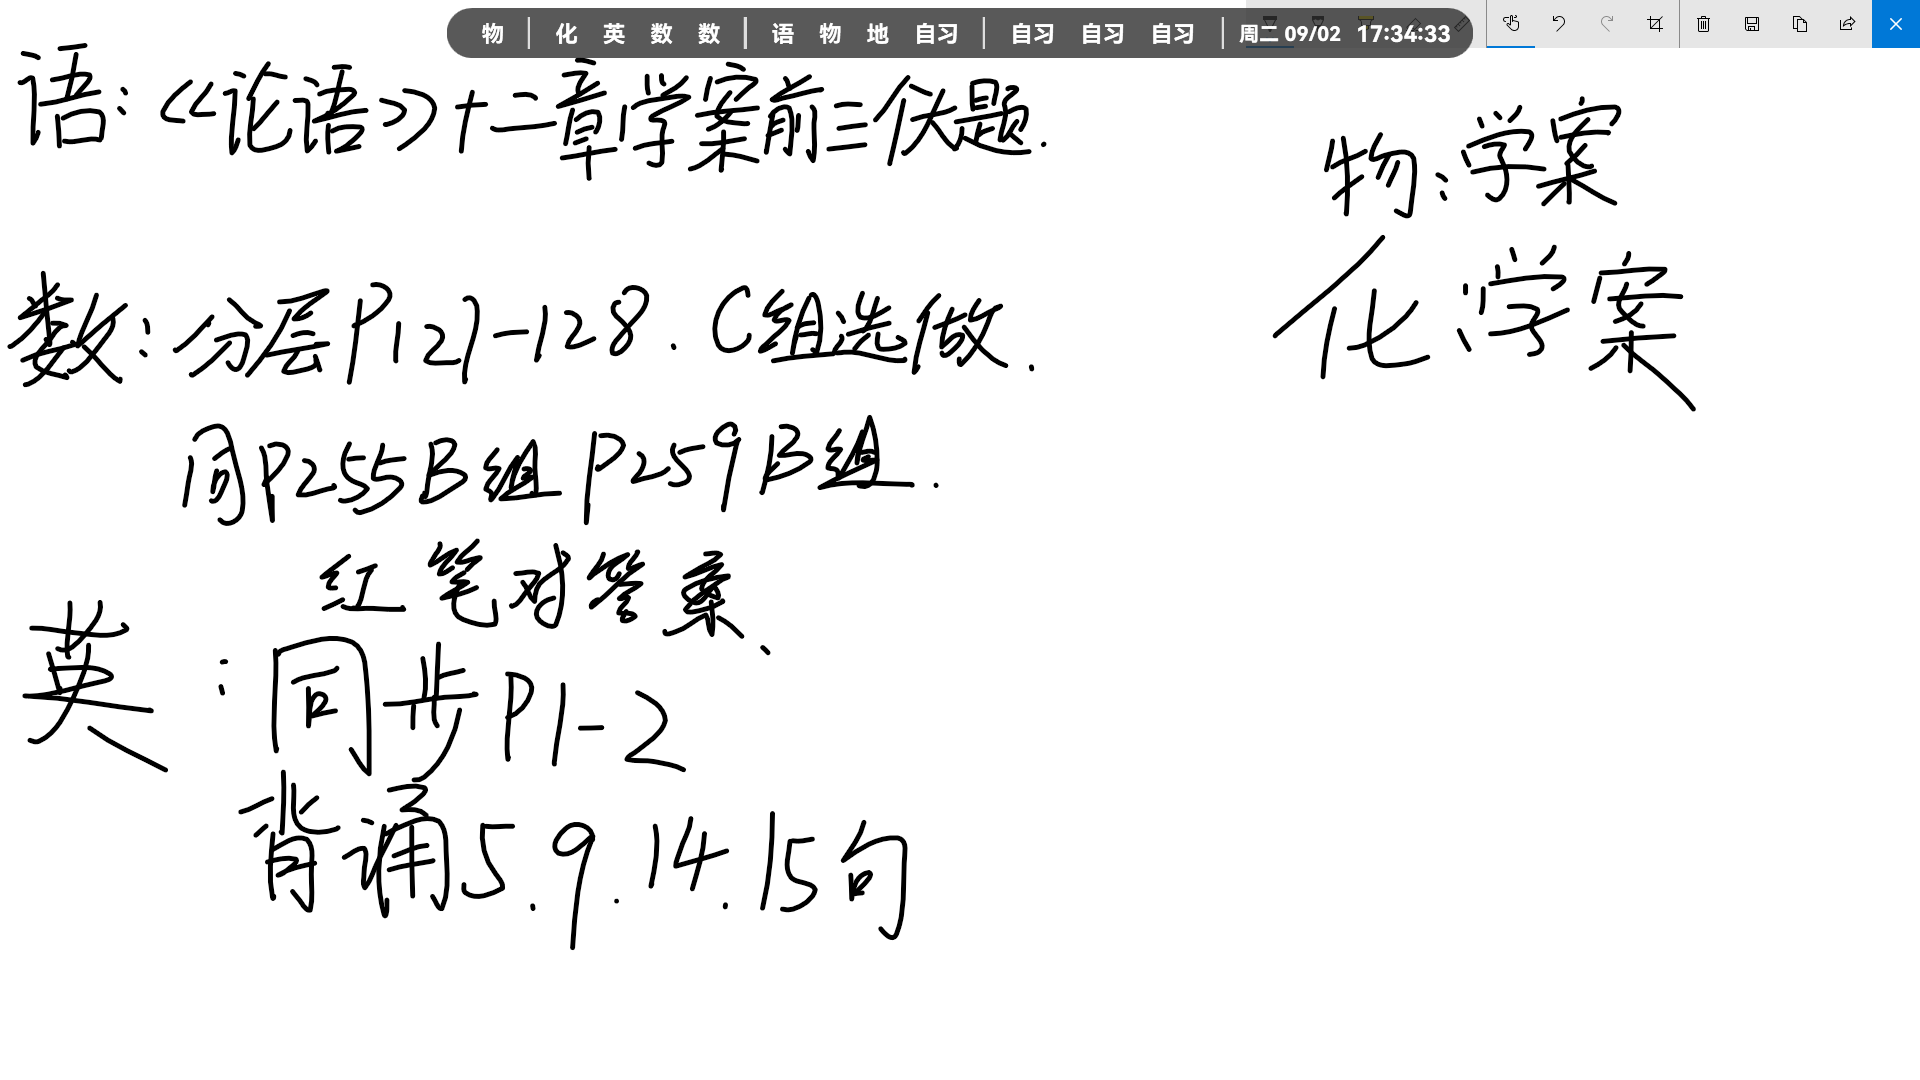 物 | 化 英 数 数 | 语 物 地 自习 | 自习 自习 自习 | 周二 09/02 17:34:33
语:《论语》十二章学案前三伏题.
数:分层P127-128.C组选做.
同P255B组 P259B组.
红笔对答案、
英:同步P1-2
背诵5.9.14.15句
物:学案
化:学案